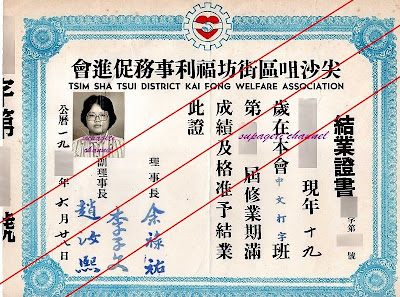 尖沙咀區街坊福利事務促進會
TSIM SHA TSUI DISTRICT KAI FONG WELFARE ASSOCIATION
結業證書
字第 號
現年十九
歲在本會中文打字班
第 屆修業期滿
成績及格准予結業
此證
理事長 余祿祐
副理事長 李子文
趙汝熙
公曆一九 年六月廿八日
第 號
supagett channel
supagett channel